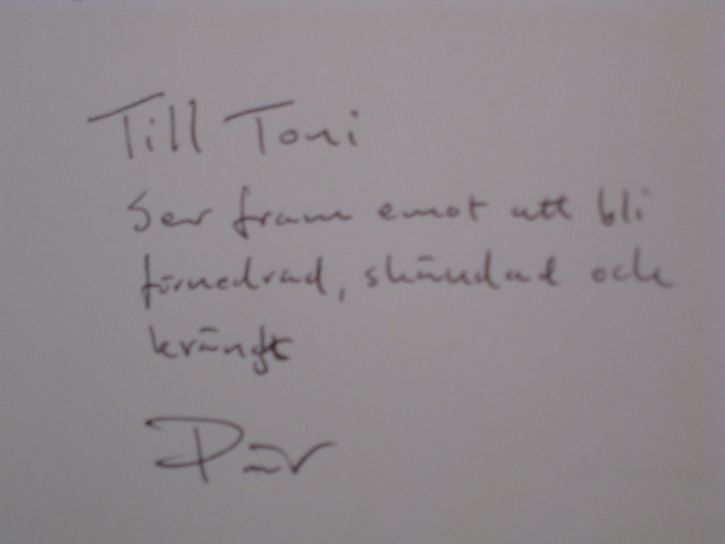 Till Toni
Ser fram emot att bli
förnedrad, skändad och
kränkt
Pär